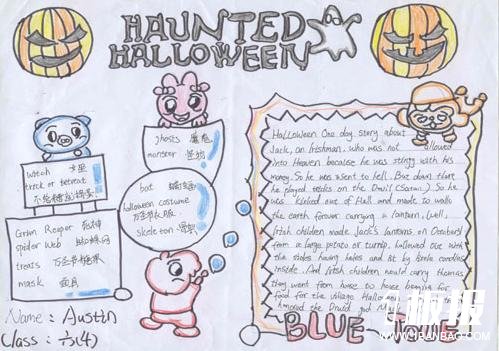 HAUNTED
HALLOWEEN
witch 女巫
trick or tetreat
不给糖就捣蛋
Grim Reaper 死神
spider Web 蜘蛛网
treats 万圣节糖果
mask 面具
ghosts 魔鬼
monster 怪物
bat 蝙蝠
halloween costume
万圣节服
skeleton 骨架
Halloween One day story about
Jack, an Irishman, who was not allowed
into Heaven because he was stingy with his
money. So he was sent to hell. But down there
he played tricks on the Devil (Satan). So he
was kicked out of Hell and made to walk
the earth forever carrying a lantern. Well,
Irish children made Jack's lanterns on October31
from a large potato or turnip, hallowed out with
the sides having holes and lit by little candles
inside. And Irish children would carry them as
they went from house to house begging for
food for the village Hallo
honored the Druid god
BLUE
Name: Austin
Class: 六(4)
板报
WWW.IFANBAO.COM